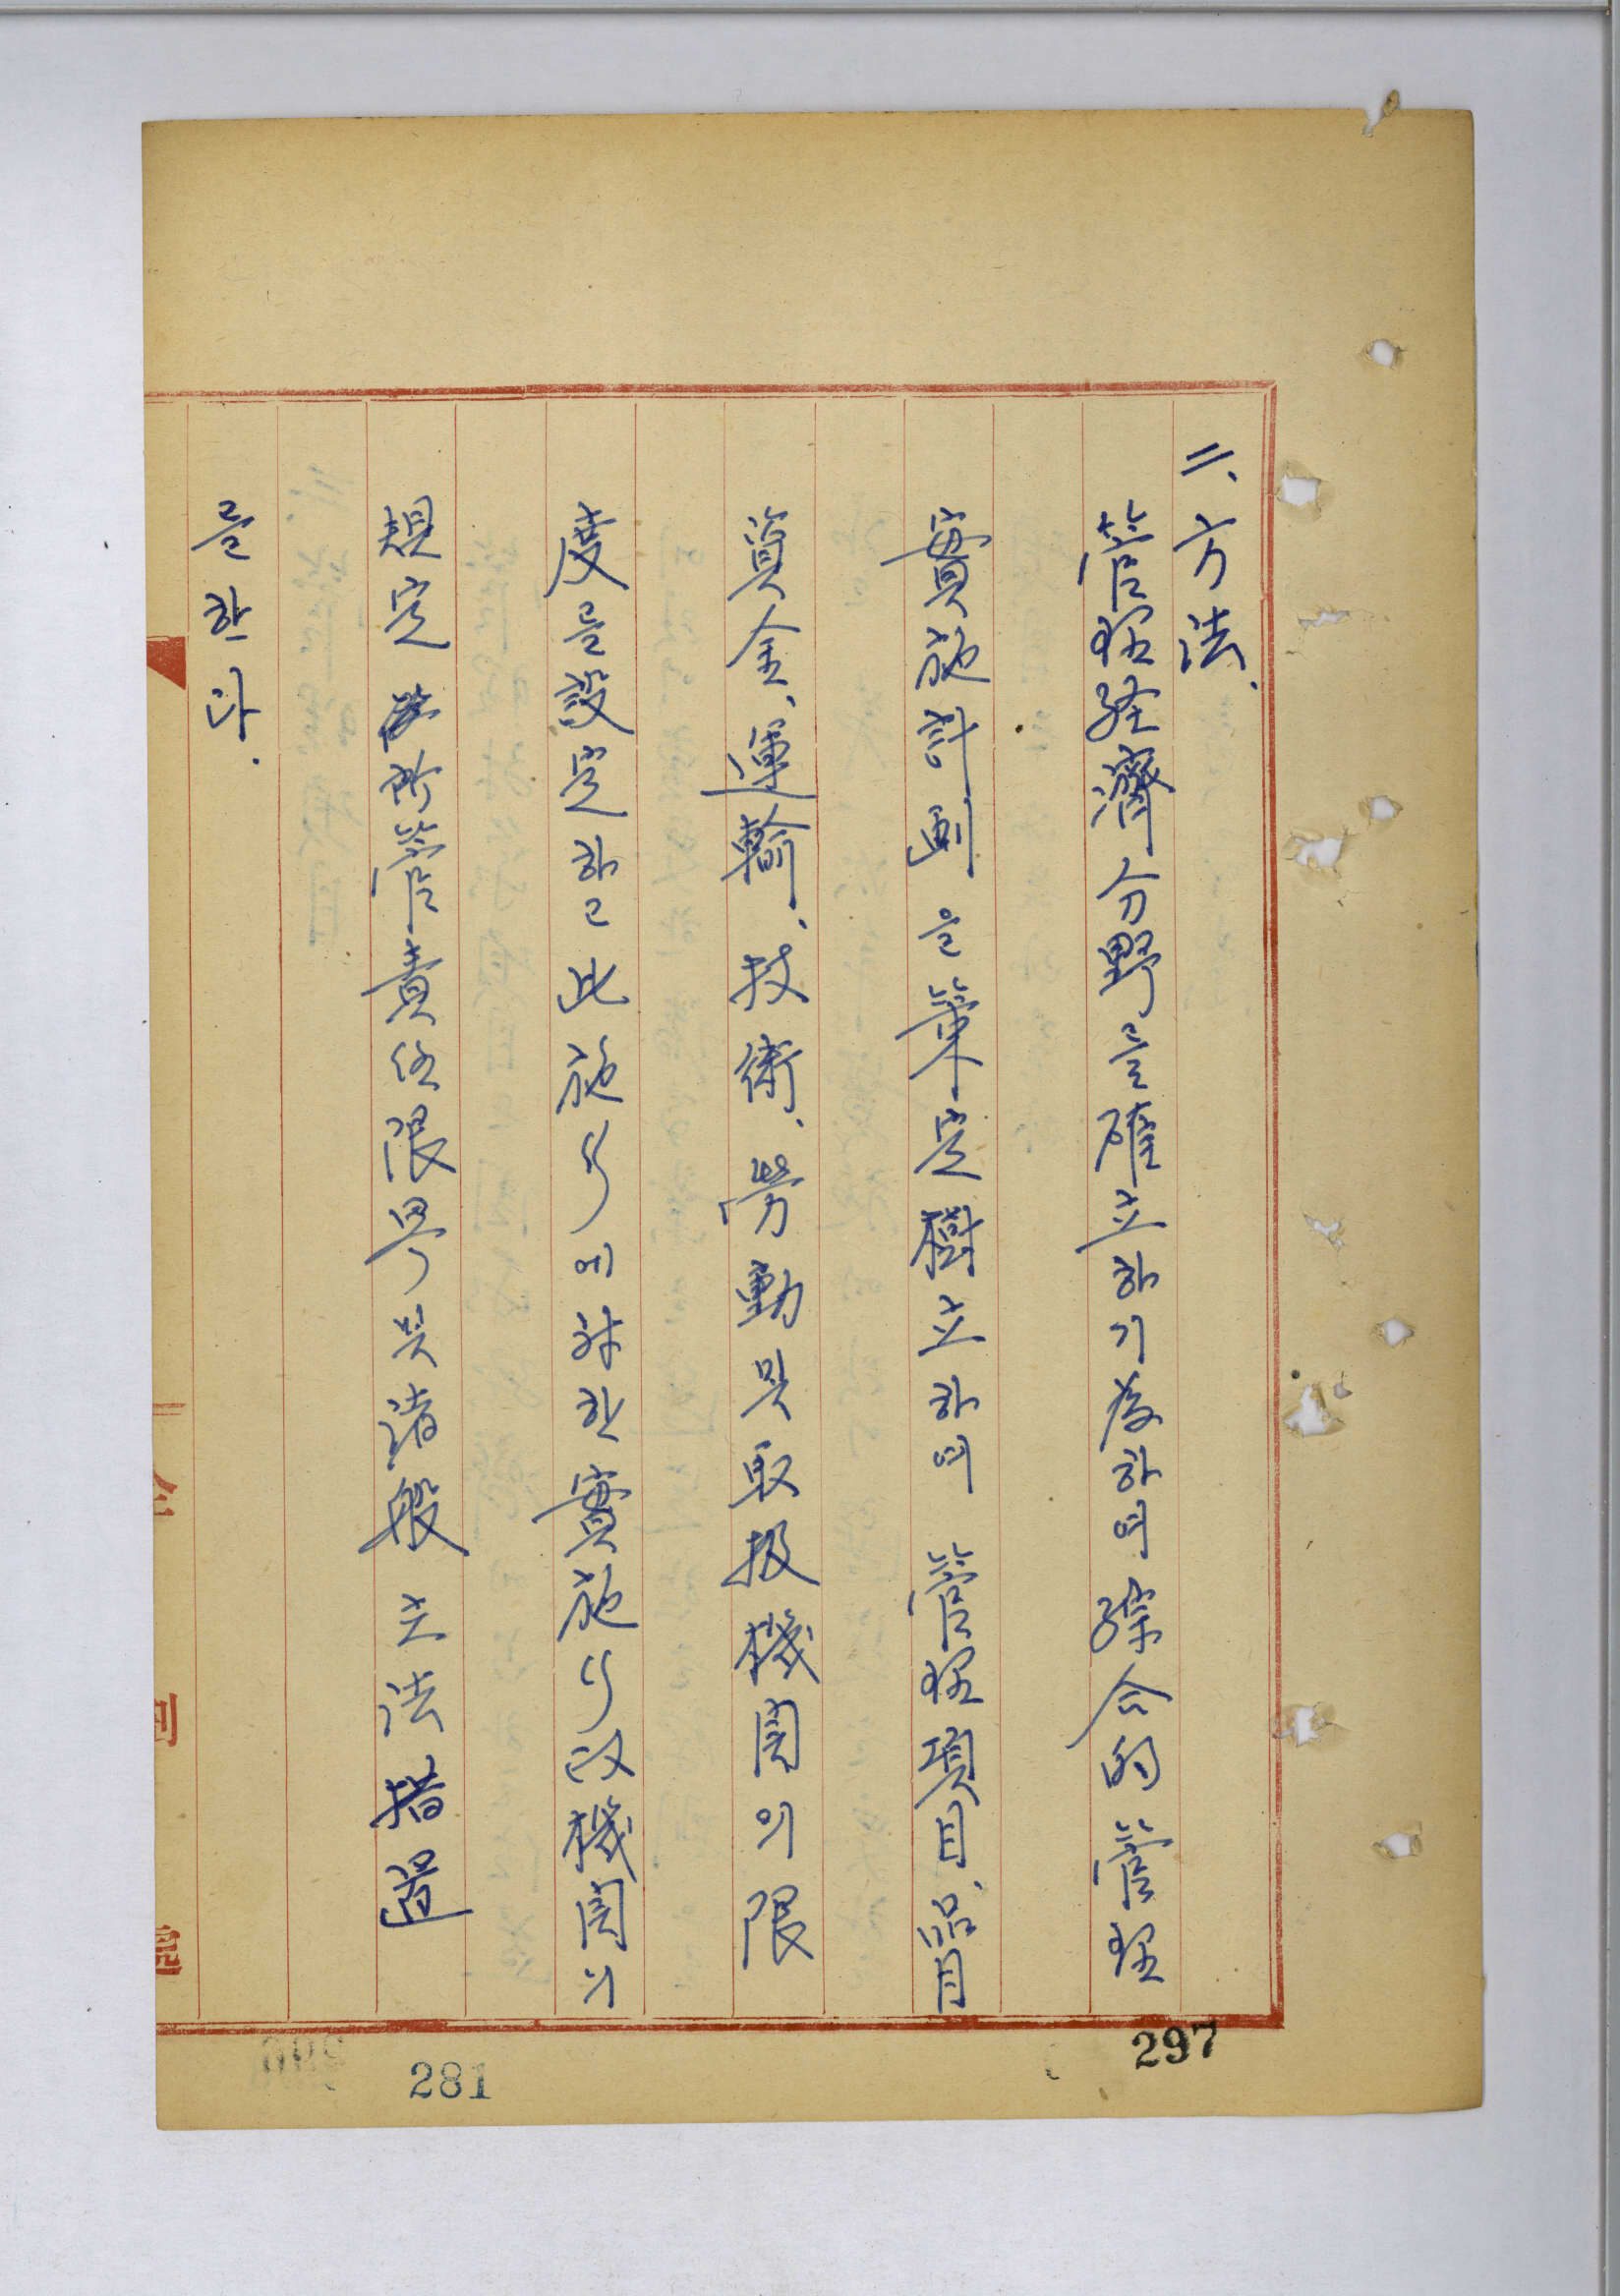 二、方法、
管理經濟分野를 確立하기 爲하여 綜合的 管理
實施計画을 策定樹立하되 管理項目、
資金、運輸、技術、勞動 및 取扱機関의 限
度를 設定하고 此 施行 한 實施行 機関의
規定 管責任限界 및 諸般 立法措置
를 한다.
297
281